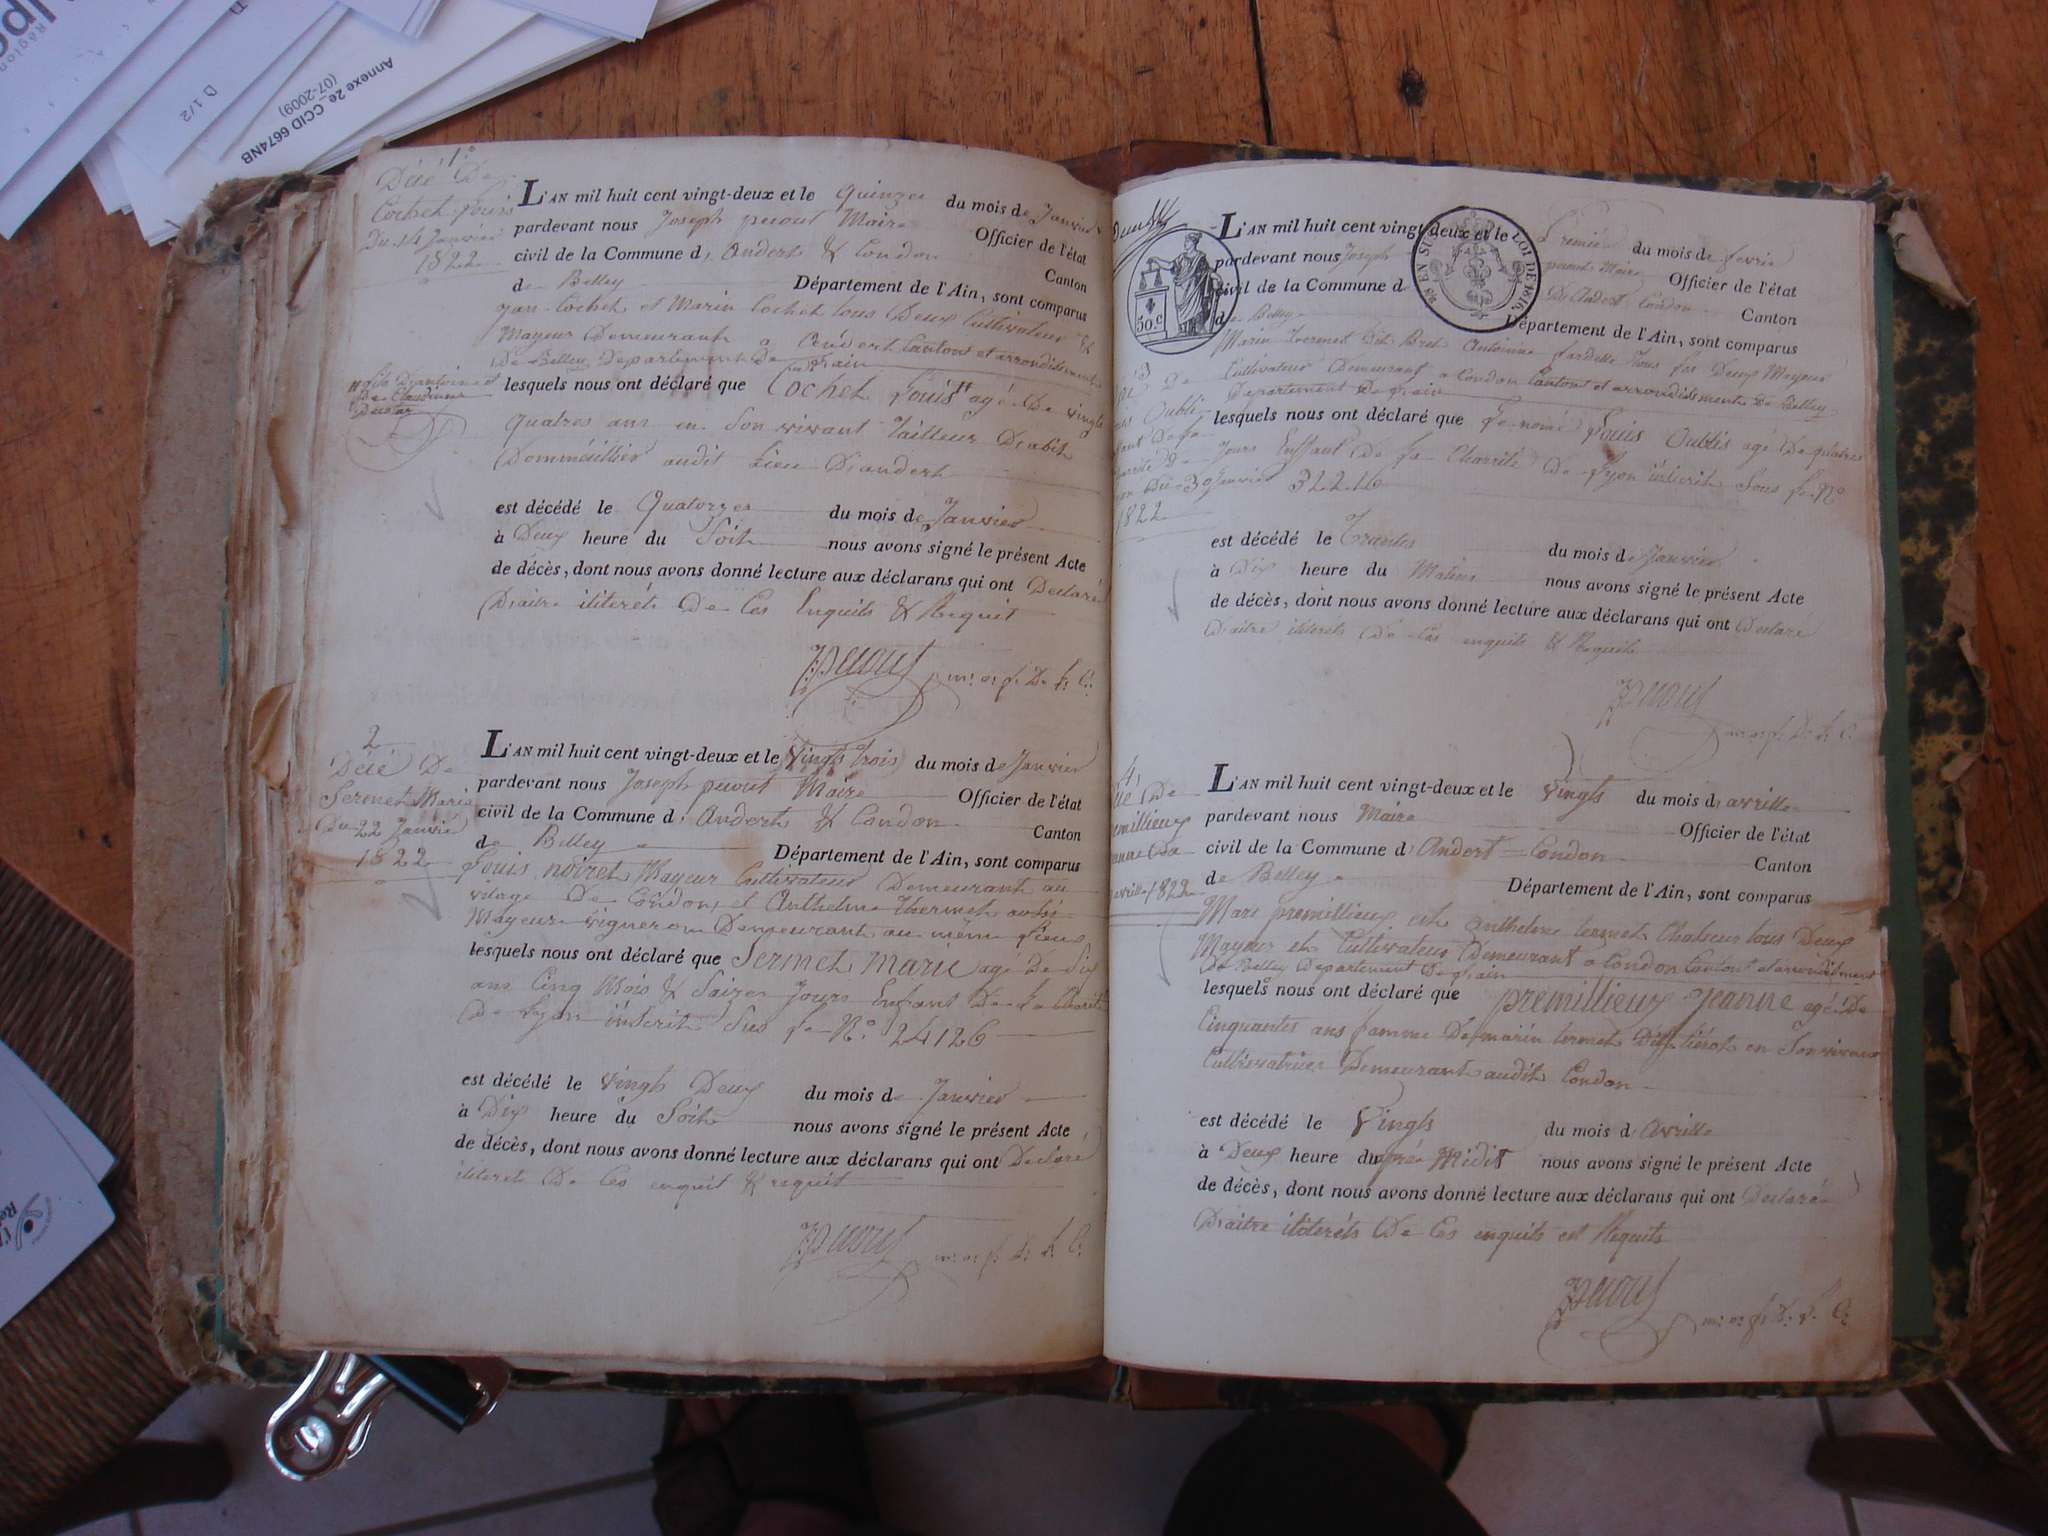 Annexe 2e_CCID 6674NB
(07-2009)
D 1/2
1.°
Décé De
Cochet Louis
Du 14 Janvier
1822
L'AN mil huit cent vingt-deux et le quinzes du mois de Janvier
pardevant nous Joseph perout Maire Officier de l'état
civil de la Commune d'Andert & Condon Canton
de Belley Département de l'Ain, sont comparus
Cochet et Marin Cochet tous Deux Cultivateur &
Mayeur Demeurant a Andert Canton et arrondissement
De Belley Departement De L'ain
lesquels nous ont déclaré que Cochet Louis agé De vingts
quatres ans en Son vivant Tailleur D'abits
audit Lieu D'andert
est décédé le Quatorzes du mois de Janvier
à Deux heure du Soit nous avons signé le présent Acte
de décès, dont nous avons donné lecture aux déclarans qui ont Déclaré
D'aitre iliterets De Ces Enquits & Requit
2
Décé De
Sermet Marie
Du 22 Janvié
1822
L'AN mil huit cent vingt-deux et le Vingts trois du mois de Janvier
pardevant nous Joseph perout Maire Officier de l'état
civil de la Commune d'Andert & Condon Canton
de Belley Département de l'Ain, sont comparus
Louis noiret Mayeur Cultivateur Demeurant au
vilage De Condon, et Anthelme Thermet aussi
Mayeur vigneron Demeurant au même Lieu
lesquels nous ont déclaré que Sermet Marie agé De Six
ans Cinq Mois & Saizes Jours Enfant De La Charité
De Lyon inscrit Sus Le N.° 24126
est décédé le Vingts Deux du mois de Janvier
à Dix heure du Soit nous avons signé le présent Acte
de décès, dont nous avons donné lecture aux déclarans qui ont Déclaré
iliteret De Ces enquit & requit
50 c
LOI DE 1816
L'AN mil huit cent vingt-deux et le Premier du mois de fevrié
pardevant nous Joseph perout Maire Officier de l'état
civil de la Commune d'Andert Condon Canton
de Belley Département de l'Ain, sont comparus
Marin Dit Bret Antoine tous Les Deux Mayeur
Cultivateur Demeurant a Condon Canton et arrondissement De Belley
Departement De L'ain
lesquels nous ont déclaré que Le nomé Louis Oublis agé De quatres
Jours Enffant De La Charrité De Lyon inscrit Sous Le N°
32216
1822
est décédé le Trantes du mois de Janvier
à Dix heure du Matins nous avons signé le présent Acte
de décès, dont nous avons donné lecture aux déclarans qui ont Déclaré
D'aitre iliterets De Ces enquits & Requits
4
L'AN mil huit cent vingt-deux et le Vingts du mois d'avrille
pardevant nous Maire Officier de l'état
civil de la Commune d'Andert Condon Canton
de Belley Département de l'Ain, sont comparus
Marc premillieux et anthelme termet tous Deux
Mayeur et Cultivateur Demeurant a Condon Canton et arrondisment
De Belley Departement De L'ain
lesquels nous ont déclaré que premillieux Jeanne agé De
Cinquantes ans famme De marin termet Dit en Son vivant
Cultivatrice Demeurant audit Condon
est décédé le Vingts du mois d'avrille
à Deux heure du après Midit nous avons signé le présent Acte
de décès, dont nous avons donné lecture aux déclarans qui ont Déclaré
D'aitre iliterets De Ces enquits et Requits